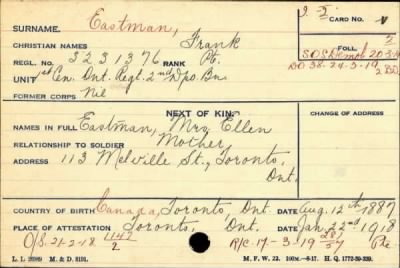 SURNAME. Eastman, 2-2- CARD NO.
CHRISTIAN NAMES Frank
REGL. NO. 3231376 RANK Pt. FOLL.
UNIT 1st Cen. Ont. Regt. 2nd Dpo. Bn. S.O.S. Demob 20-3-19
FORMER CORPS Nil D.O 38-24-3-19
NEXT OF KIN. CHANGE OF ADDRESS
NAMES IN FULL Eastman, Mrs Ellen
RELATIONSHIP TO SOLDIER Mother
ADDRESS 113 Melville St., Toronto,
Ont.
COUNTRY OF BIRTH Canada, Toronto Ont DATE Aug. 12th 1887
PLACE OF ATTESTATION Toronto, Ont. DATE Jan. 22nd 1918
O/S. 21-2-18 1147/2 R/C. 17-3-19 Pte
L. L. M. & D. 8191. M. F. W. 22. 100M.-6-17. H. Q. 1772-39-339.